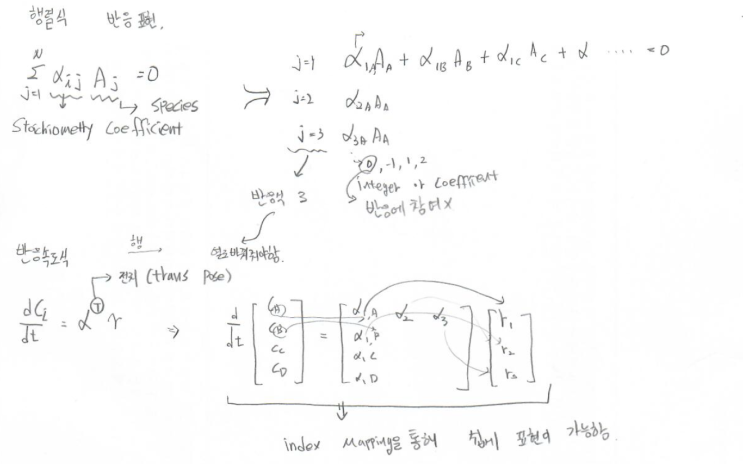 행렬식 반응 표현.
N
Σ αij Aj = 0
j=1
→ Species
Stochiometry Coefficient
j=1 α1A AA + α1B AB + α1C AC + α ···· = 0
j=2 α2A AA
j=3 α3A AA
0, -1, 1, 2
integer or coefficient
반응식 3
반응에 참여X
반응속도식 행 열로 바꿔줘야함.
→ 전치 (trans pose)
dCi/dt = α^T r ⇒ d/dt [CA CB CC CD] = [α1,A α2 α3 α1,B α1,C α1,D] [r1 r2 r3]
index Mapping을 통해 쉽게 표현이 가능함.